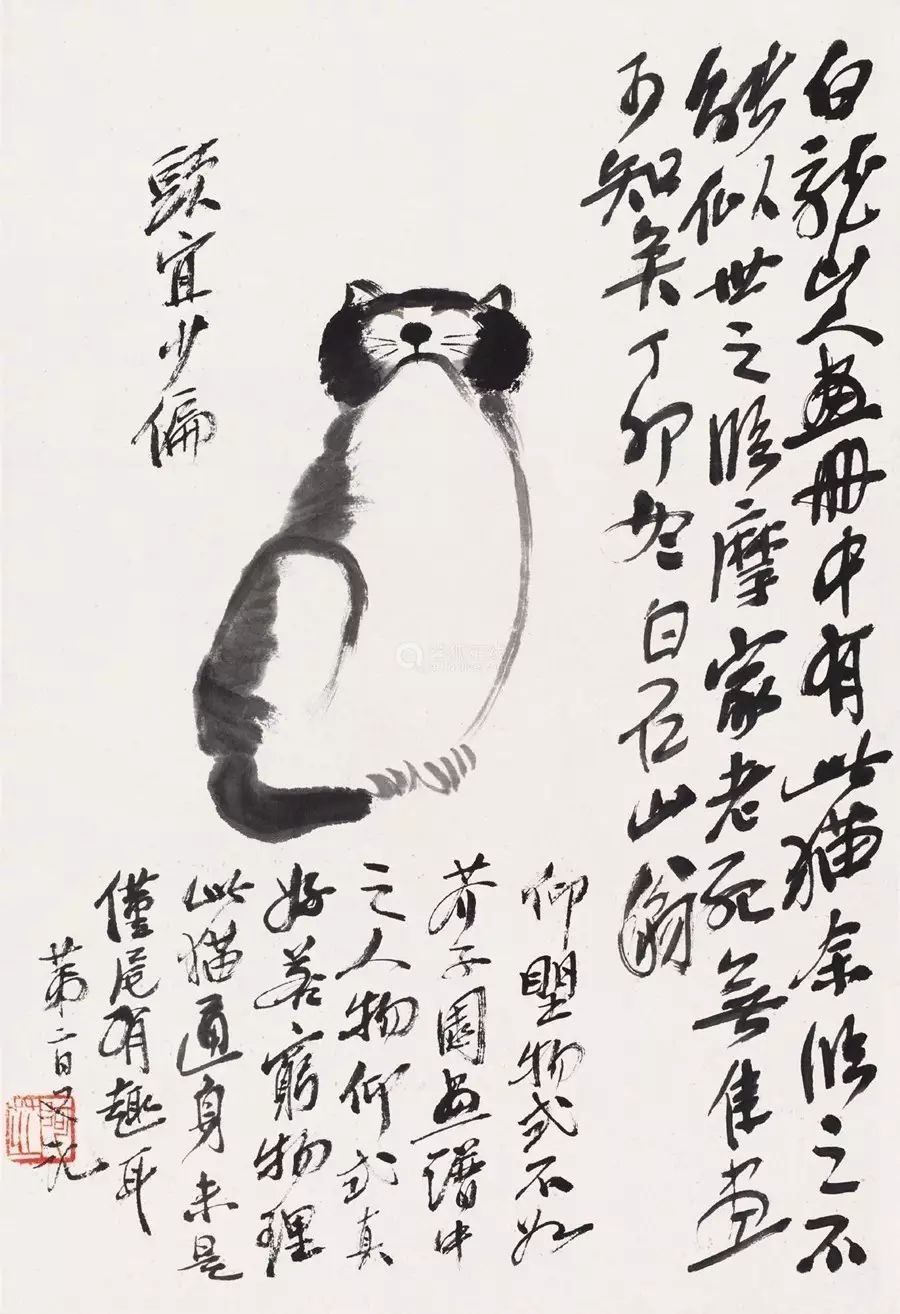 白龍山人畫冊中有此猫余临之不
能似世之临摩家老死無佳畫
可知矣丁卯冬白石山翁
頭宜少偏
仰望物式不如
芥子園畫譜中
之人物仰式真
好若窮物理
此猫通身未是
僅尾有趣耳
第二日又記